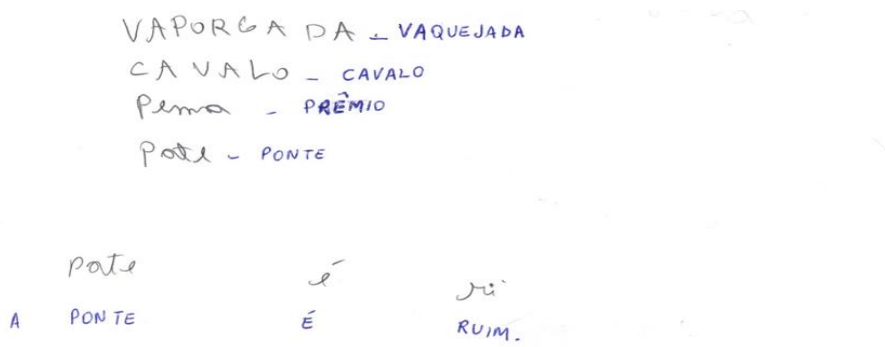 VAPORGADA - VAQUEJADA
CAVALO - CAVALO
Pema - PRÊMIO
Pote - PONTE
pote é ri
A PONTE É RUIM.